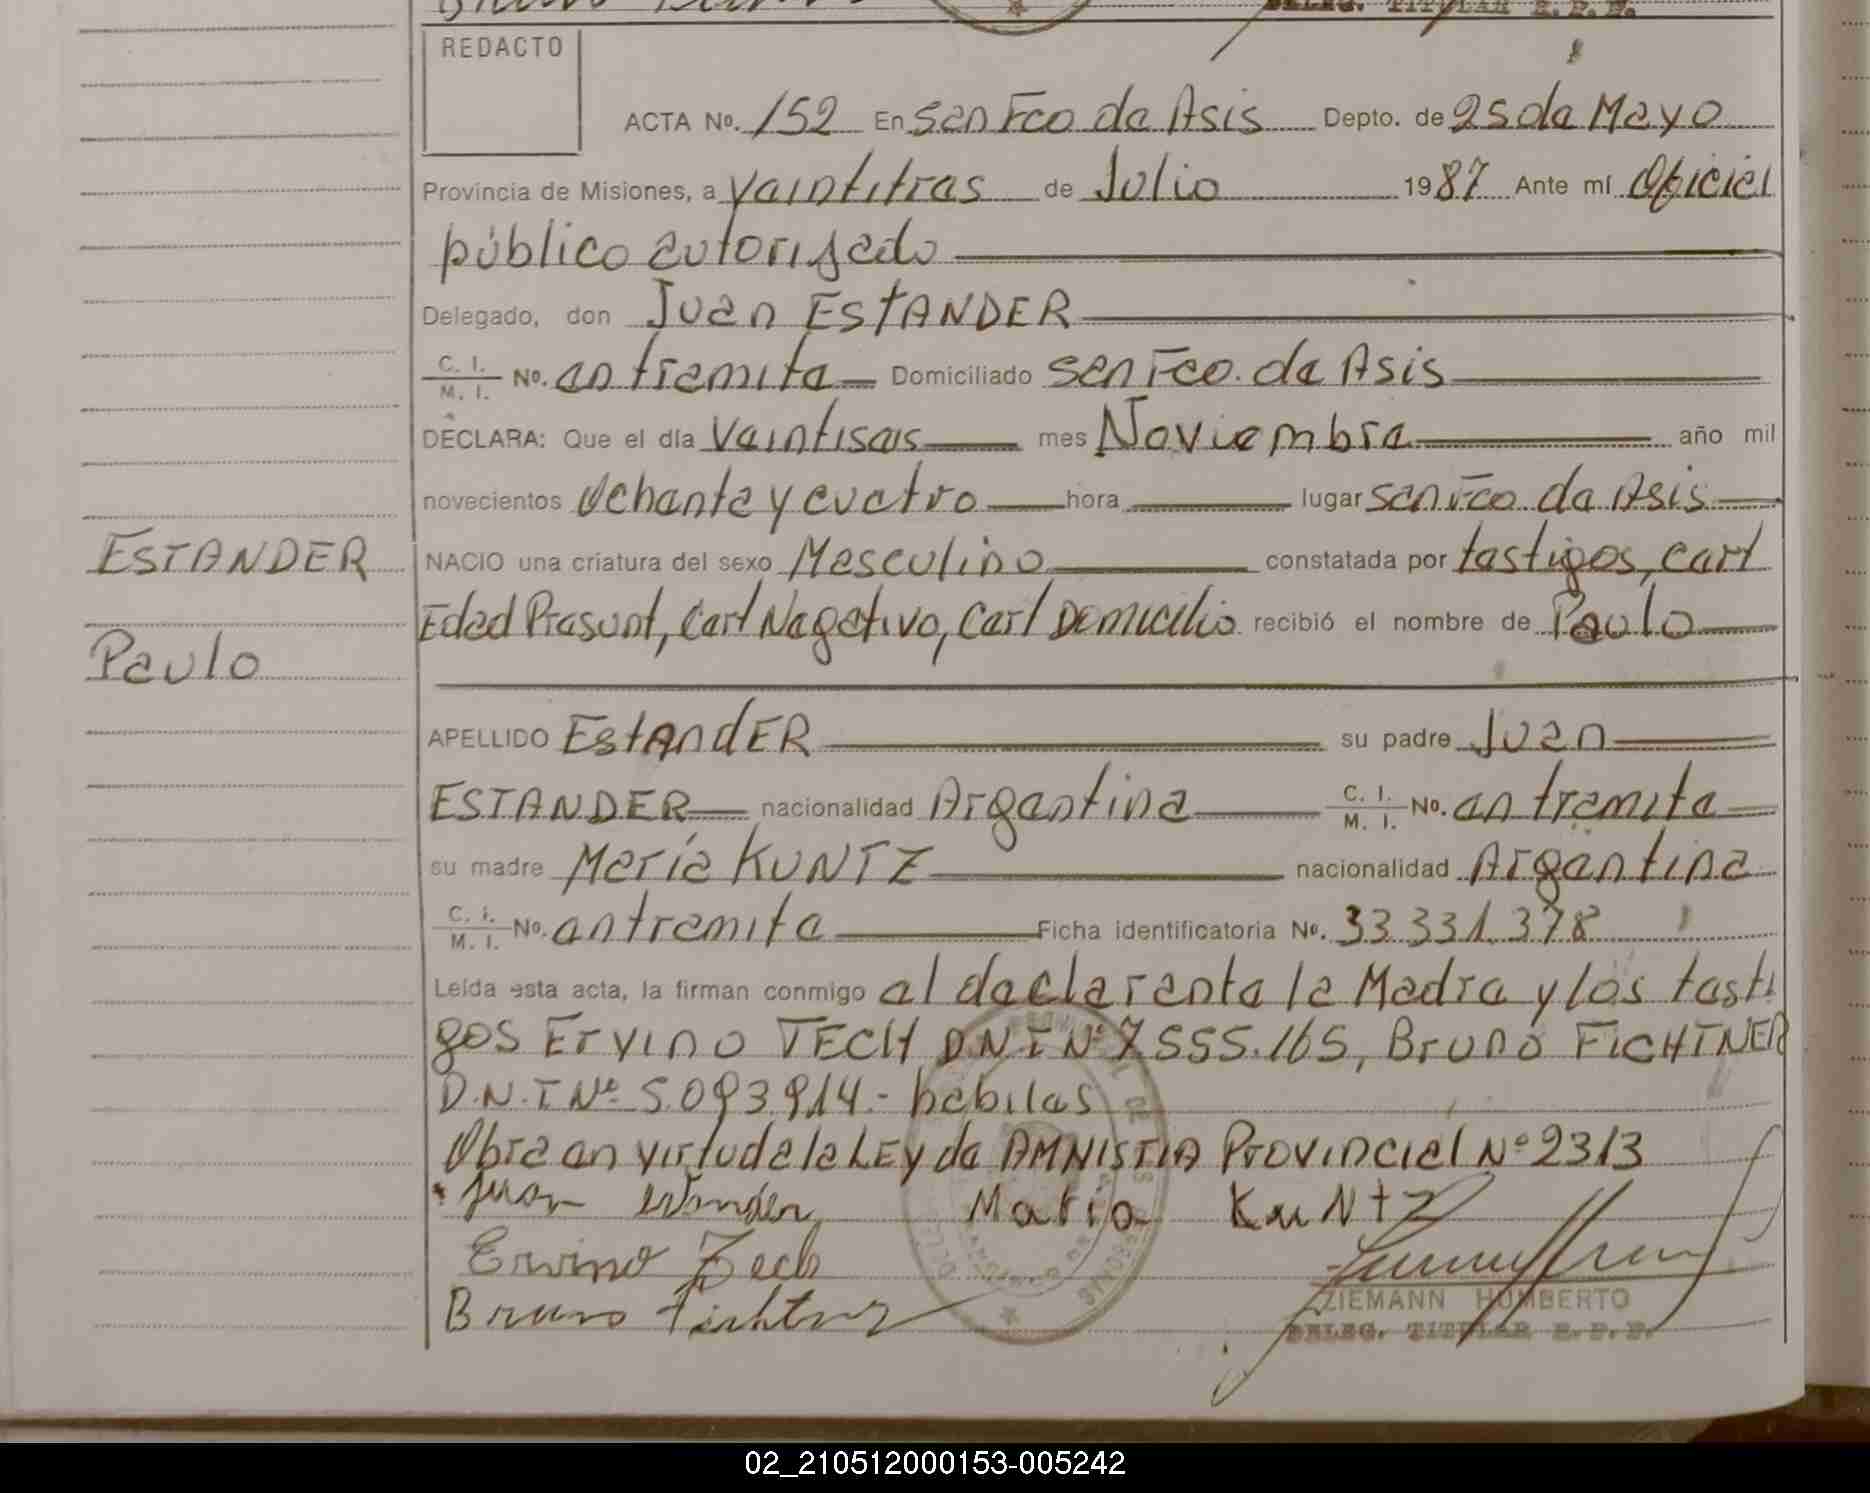 DELEG. TITULAR R. P. P.
REDACTO
ACTA Nº. 152 En San Fco de Asis Depto. de 25 de Mayo
Provincia de Misiones, a veintitres de Julio 1987 Ante mí Oficial
público autorisado
Delegado, don Juan EStANDER
C. I. M. I. Nº. en tramita Domiciliado San Fco. de Asis
DECLARA: Que el día veintiseis mes Noviembre año mil
novecientos Ochenta y cuatro hora lugar San Fco de Asis
ESTANDER
NACIO una criatura del sexo Masculino constatada por testigos, cert
Edad Presunt, Cert Negativo, Cert Domicilio recibió el nombre de Paulo
Paulo
APELLIDO EstAndER su padre Juan
ESTANDER nacionalidad Argentina C. I. M. I. Nº. en tramita
su madre María KUNTZ nacionalidad Argentina
C. I. M. I. Nº. en tramita Ficha identificatoria Nº. 33 331.378
Leída esta acta, la firman conmigo el declarente la Madre y los testi
gos Ervino TECH DNI Nº 7555.165, Bruno FICHTNER
D.N.I Nº 5.093.914.- habilas
Obra en virtud a la LEy de AMNISTIA PROVINCIAl Nº 2313
Juan Maria KuNtz
Ervino Zech
Bruno Fichtner
ZIEMANN HUMBERTO
DELEG. TITULAR R. P. P.
02_210512000153-005242